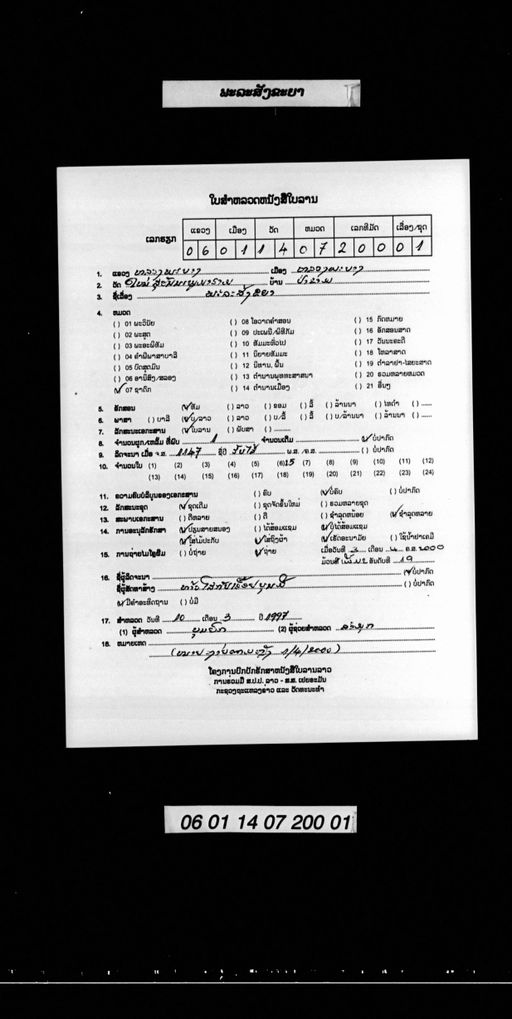 ພະລະສັງຂະຍາ
ໃບສຳຫລວດຫນັງສືໃບລານ
ແຂວງ ເມືອງ ວັດ ຫມວດ ເລກທີມັດ ເລື່ອງ/ຊຸດ
ເລກຮຽກ 0 6 0 1 1 4 0 7 2 0 0 0 1
1. ແຂວງ ຫລວງພະບາງ ເມືອງ ຫລວງພະບາງ
2. ວັດ ໃຫມ່ ບ້ານ
3. ຊື່ເລື່ອງ ພະລະສັງຂຍາ
4. ຫມວດ
( ) 01 ພະວິນັຍ ( ) 08 ໂອວາດຄຳສອນ ( ) 15 ກົດຫມາຍ
( ) 02 ພະສູດ ( ) 09 ປະເພນີ/ພິທີກຳ ( ) 16 ອັກສອນສາດ
( ) 03 ພະອະພິທັມ ( ) 10 ທັມມະທົ່ວໄປ ( ) 17 ວັນນະຄະດີ
( ) 04 ຄຳພີພາສາບາລີ ( ) 11 ນິຍາຍທັມມະ ( ) 18 ໂຫລາສາດ
( ) 05 ບົດສູດມົນ ( ) 12 ນິທານ, ພື້ນ ( ) 19 ຕຳລາຢາ-ໄສຍະສາດ
( ) 06 ອານິສົງ/ສລອງ ( ) 13 ຕຳນານພຸທທະສາສນາ ( ) 20 ຮວມຫລາຍຫມວດ
(✓) 07 ຊາດົກ ( ) 14 ຕຳນານເມືອງ ( ) 21 ອື່ນໆ
5. ອັກສອນ (✓) ທັມ ( ) ລາວ ( ) ຂອມ ( ) ລື້ ( ) ລ້ານນາ ( ) ໄທດຳ ( )
6. ພາສາ ( ) ບາລີ (✓) ບ/ລາວ ( ) ລາວ ( ) ບ/ລື້ ( ) ລື້ ( ) ບ/ລ້ານນາ ( ) ລ້ານນາ ( )
7. ລັກສະນະເອກະສານ (✓) ໃບລານ ( ) ພັບສາ ( )
8. ຈຳນວນຜູກ/ເຫລັ້ມ ທີ່ພົບ 1 ຈຳນວນເຕັມ (✓) ບໍ່ປາກົດ
9. ລິດຈະນາ ເມື່ອ ຈ.ສ. 1147 ຊື່ປີ ພ.ສ./ຄ.ສ. ( ) ບໍ່ປາກົດ
10. ຈຳນວນໃບ (1) (2) (3) (4) (5) (6) 15 (7) (8) (9) (10) (11) (12)
(13) (14) (15) (16) (17) (18) (19) (20) (21) (22) (23) (24)
11. ຄວາມຄົບບໍລິບູນຂອງເອກະສານ ( ) ຄົບ (✓) ບໍ່ຄົບ ( ) ບໍ່ປາກົດ
12. ລັກສະນະຊຸດ (✓) ຊຸດເດີມ ( ) ຊຸດຈັດຂຶ້ນໃຫມ່ ( ) ຮວມຫລາຍຊຸດ
13. ສະພາບເອກະສານ ( ) ດີຫລາຍ ( ) ດີ ( ) ຊຳລຸດຫນ້ອຍ (✓) ຊຳລຸດຫລາຍ
14. ການອະນຸລັກຮັກສາ (✓) ປ່ຽນສາຍສນອງ ( ) ໄດ້ສ້ອມແຊມ (✓) ບໍ່ໄດ້ສ້ອມແຊມ
(✓) ໃສ່ໄມ້ປະກັບ (✓) ໃສ່ຖົງຜ້າ (✓) ເຮັດອະນາມັຍ ( ) ໃຊ້ນ້ຳຢາເຄມີ
15. ການຖ່າຍໄມໂຄຣຟິມ ( ) ບໍ່ຖ່າຍ (✓) ຖ່າຍ ເມື່ອວັນທີ 3 ເດືອນ 4 ຄ.ສ. 2000
ມ້ວນທີ ອັນດັບທີ 19
16. ຊື່ຜູ້ລິດຈະນາ (✓) ບໍ່ປາກົດ
ຊື່ຜູ້ສັດທາສ້າງ ( ) ບໍ່ປາກົດ
(✓) ມີຄຳອະທິດຖານ ( ) ບໍ່ມີ
17. ສຳຫລວດ ວັນທີ 10 ເດືອນ 3 ປີ 1997
(1) ຜູ້ສຳຫລວດ (2) ຜູ້ຊ່ວຍສຳຫລວດ
18. ຫມາຍເຫດ
1/4/2000)
ໂຄງການປົກປັກຮັກສາຫນັງສືໃບລານລາວ
ການຮວມມື ສ.ປ.ປ. ລາວ - ສ.ສ. ເຢຍຣະມັນ
ກະຊວງຖະແຫລງຂ່າວ ແລະ ວັດທະນະທຳ
06 01 14 07 200 01